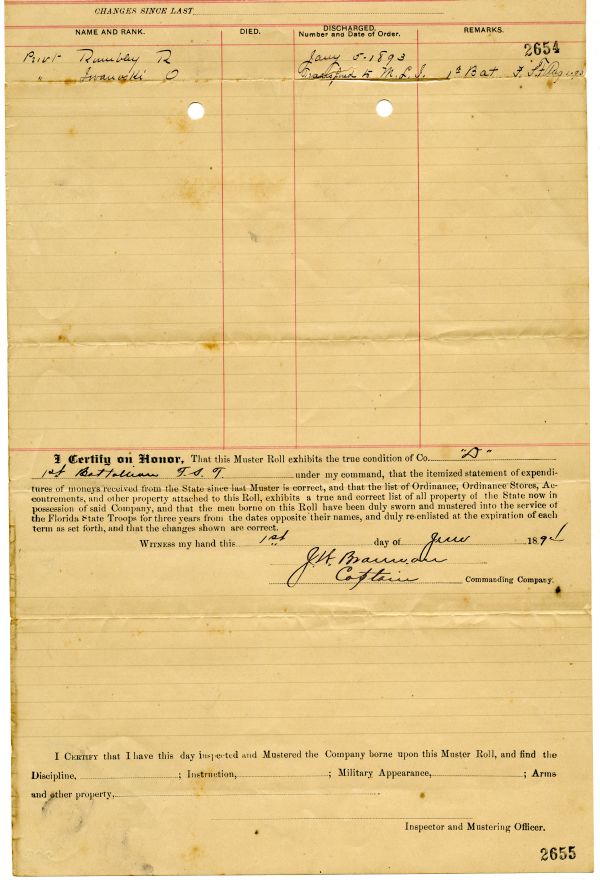 CHANGES SINCE LAST
NAME AND RANK. DIED. DISCHARGED, Number and Date of Order. REMARKS.
2654
Privt Rumbley R Jany 5-1893
" Iwanoski O Transferd to M.L.I. 1st Bat F.S.T.
I Certify on Honor, That this Muster Roll exhibits the true condition of Co. "D"
1st Battalion F. S. T. under my command, that the itemized statement of expendi-
tures of moneys received from the State since last Muster is correct, and that the list of Ordinance, Ordinance Stores, Ac-
coutrements, and other property attached to this Roll, exhibits a true and correct list of all property of the State now in
possession of said Company, and that the men borne on this Roll have been duly sworn and mustered into the service of
the Florida State Troops for three years from the dates opposite their names, and duly re-enlisted at the expiration of each
term as set forth, and that the changes shown are correct.
WITNESS my hand this 1st day of June 189
J. W. Brannan
Captain Commanding Company.
I CERTIFY that I have this day inspected and Mustered the Company borne upon this Muster Roll, and find the
Discipline, ; Instruction, ; Military Appearance, ; Arms
and other property,
Inspector and Mustering Officer.
2655